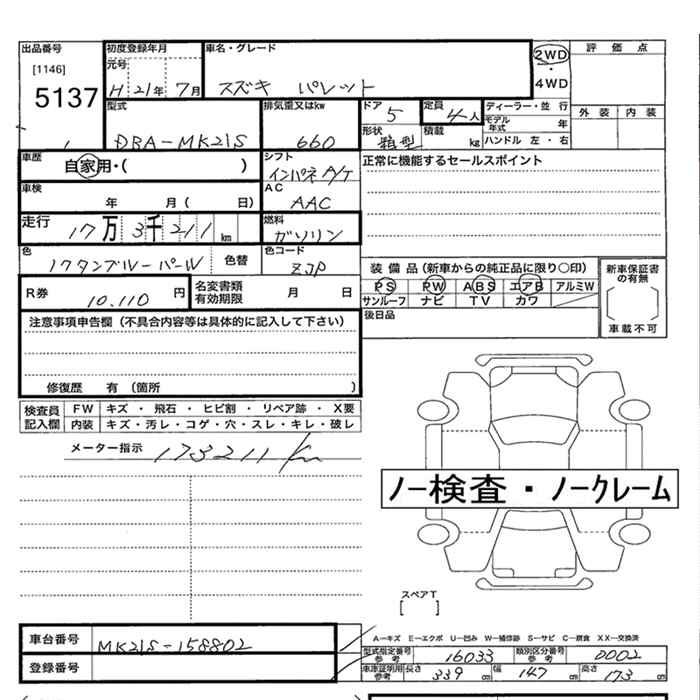 出品番号 初度登録年月 車名・グレード 2WD 評価点
[1146] 元号 ・
5137 H 21年 7月 スズキ パレット 4WD
型式 排気量又はkw ドア 5 定員 4人 ディーラー・並行 外装 内装
モデル年式 年
DBA-MK21S 660 形状 箱型 積載 kg ハンドル 左・右
車歴 自家用・( ) シフト インパネ A/T 正常に機能するセールスポイント
車検 年 月( 日) AC AAC
走行 17万3千211km 燃料 ガソリン
色 色替 色コード ZJP 装備品(新車からの純正品に限り○印) 新車保証書の有無
R券 10.110円 名変書類有効期限 月 日 PS PW ABS エアB アルミW
サンルーフ ナビ TV カワ [ ]
注意事項申告欄(不具合内容等は具体的に記入して下さい) 後日品 車載不可
修復歴 有 (箇所 )
検査員記入欄 FW キズ・飛石・ヒビ割・リペア跡・X要
内装 キズ・汚レ・コゲ・穴・スレ・キレ・破レ
メーター指示 173211km
ノー検査・ノークレーム
スペアT
[ ]
車台番号 MK21S-158802 A-キズ E-エクボ U-凹み W-補修跡 S-サビ C-腐食 XX-交換済
型式指定番号参考 16033 類別区分番号参考 0002
登録番号 車庫証明用参考 長さ 339 cm 幅 147 cm 高さ 173 cm